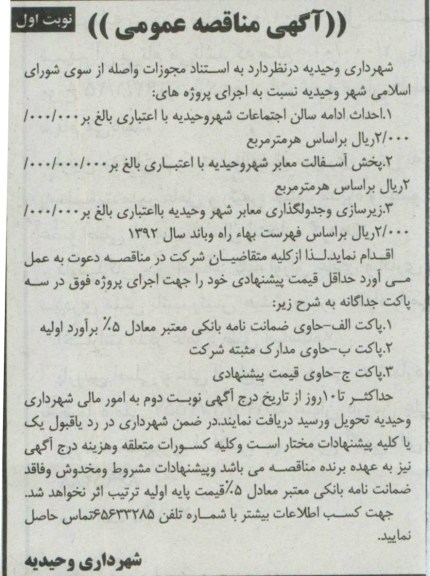 ((آگهی مناقصه عمومی))
نوبت اول
شهرداری وحیدیه درنظردارد به استناد مجوزات واصله از سوی شورای
اسلامی شهر وحیدیه نسبت به اجرای پروژه های:
۱.احداث ادامه سالن اجتماعات شهروحیدیه با اعتباری بالغ بر۰۰۰/۰۰۰/
۲/۰۰۰ریال براساس هرمترمربع
۲.پخش آسفالت معابر شهروحیدیه با اعتباری بالغ بر۰۰۰/۰۰۰/۰۰۰/
۲ریال براساس هرمترمربع
۳.زیرسازی وجدولگذاری معابر شهر وحیدیه بااعتباری بالغ بر۰۰۰/۰۰۰/
۲/۰۰۰ریال براساس فهرست بهاء راه وباند سال ۱۳۹۲
اقدام نماید.لذا ازکلیه متقاضیان شرکت در مناقصه دعوت به عمل
می آورد حداقل قیمت پیشنهادی خود را جهت اجرای پروژه فوق در سه
پاکت جداگانه به شرح زیر:
۱.پاکت الف-حاوی ضمانت نامه بانکی معتبر معادل ۵٪ برآورد اولیه
۲.پاکت ب-حاوی مدارک مثبته شرکت
۳.پاکت ج-حاوی قیمت پیشنهادی
حداکثر تا۱۰روز از تاریخ درج آگهی نوبت دوم به امور مالی شهرداری
وحیدیه تحویل ورسید دریافت نمایند.در ضمن شهرداری در رد یاقبول یک
یا کلیه پیشنهادات مختار است وکلیه کسورات متعلقه وهزینه درج آگهی
نیز به عهده برنده مناقصه می باشد وپیشنهادات مشروط ومخدوش وفاقد
ضمانت نامه بانکی معتبر معادل ۵٪قیمت پایه اولیه ترتیب اثر نخواهد شد.
جهت کسب اطلاعات بیشتر با شماره تلفن ۶۵۶۳۳۲۸۵تماس حاصل
نمایید.
شهرداری وحیدیه